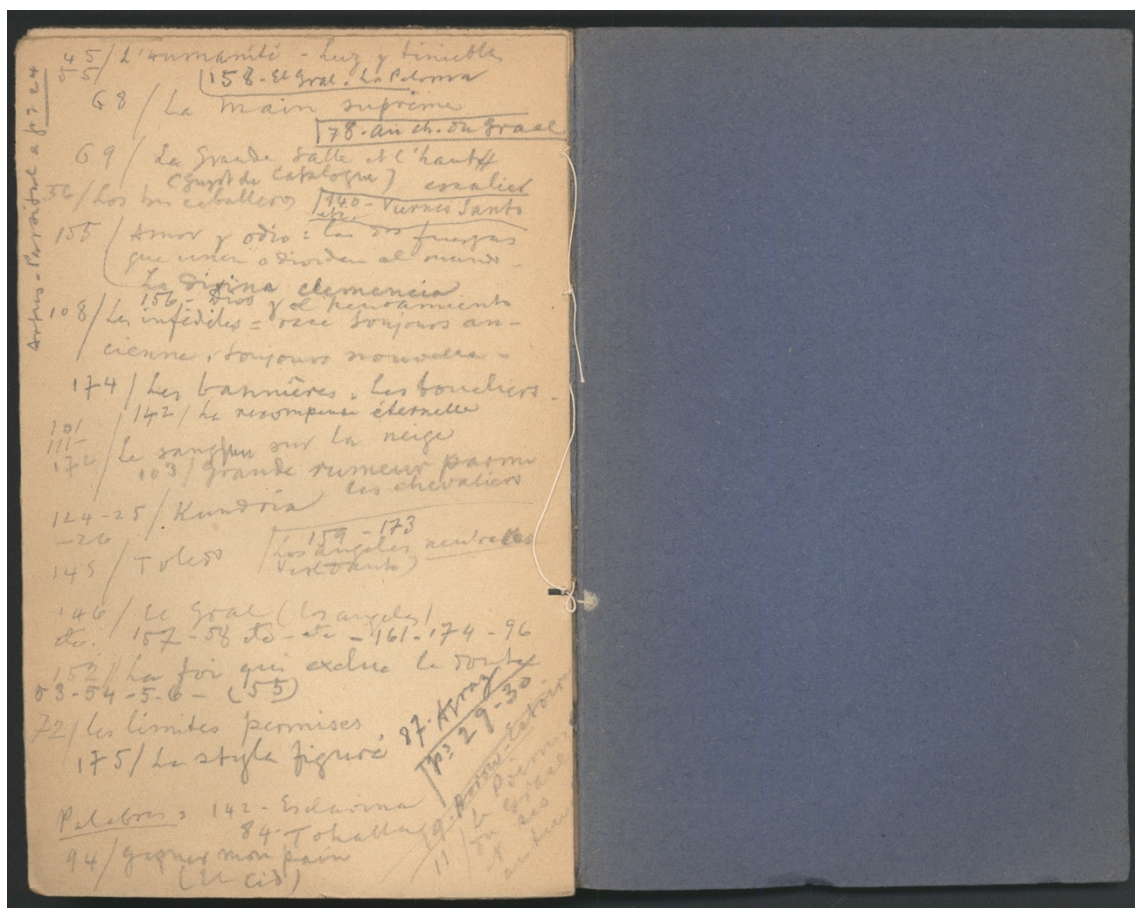 Artus-Parsifal a pº 24
45/ L'humanité - Luz y tinieblas
55
158 - El Gral. La Paloma
68/ La main suprême
178 - au ch. du Graal
69/ La grande salle et l'haut
(Guyot de Catalogne) escalier
56/ Los tres caballeros
140 - Viernes Santo
etc.
155 / Amor y odio: las dos fuerzas
que unen o dividen al mundo -
La divina clemencia
156 - Dios y el pensamiento
108/ Les infidèles = race toujours an-
cienne, toujours nouvelle -
174/ Les bannières. Les boucliers -
142/ La recompense éternelle
101
111-
172/ Le sang sur la neige
103/ Grande rumeur parmi
les chevaliers
124-25/ Kundria
-26
159 - 173
Los angeles neutrales
145/ Toledo
146/ El Gral (los angeles)
etc. 157-58 etc - etc - 161-174-96
152/ La foi qui exclue le doute
53-54-5-6- (55)
72/ les limites permises
175/ Le style figuré
87-
pº 29-30
11/ le Poème
du Graal
et ses
auteurs
Palabras: 142 - Esclavina
84-Tohalla
94/ gagner mon pain
(El Cid)